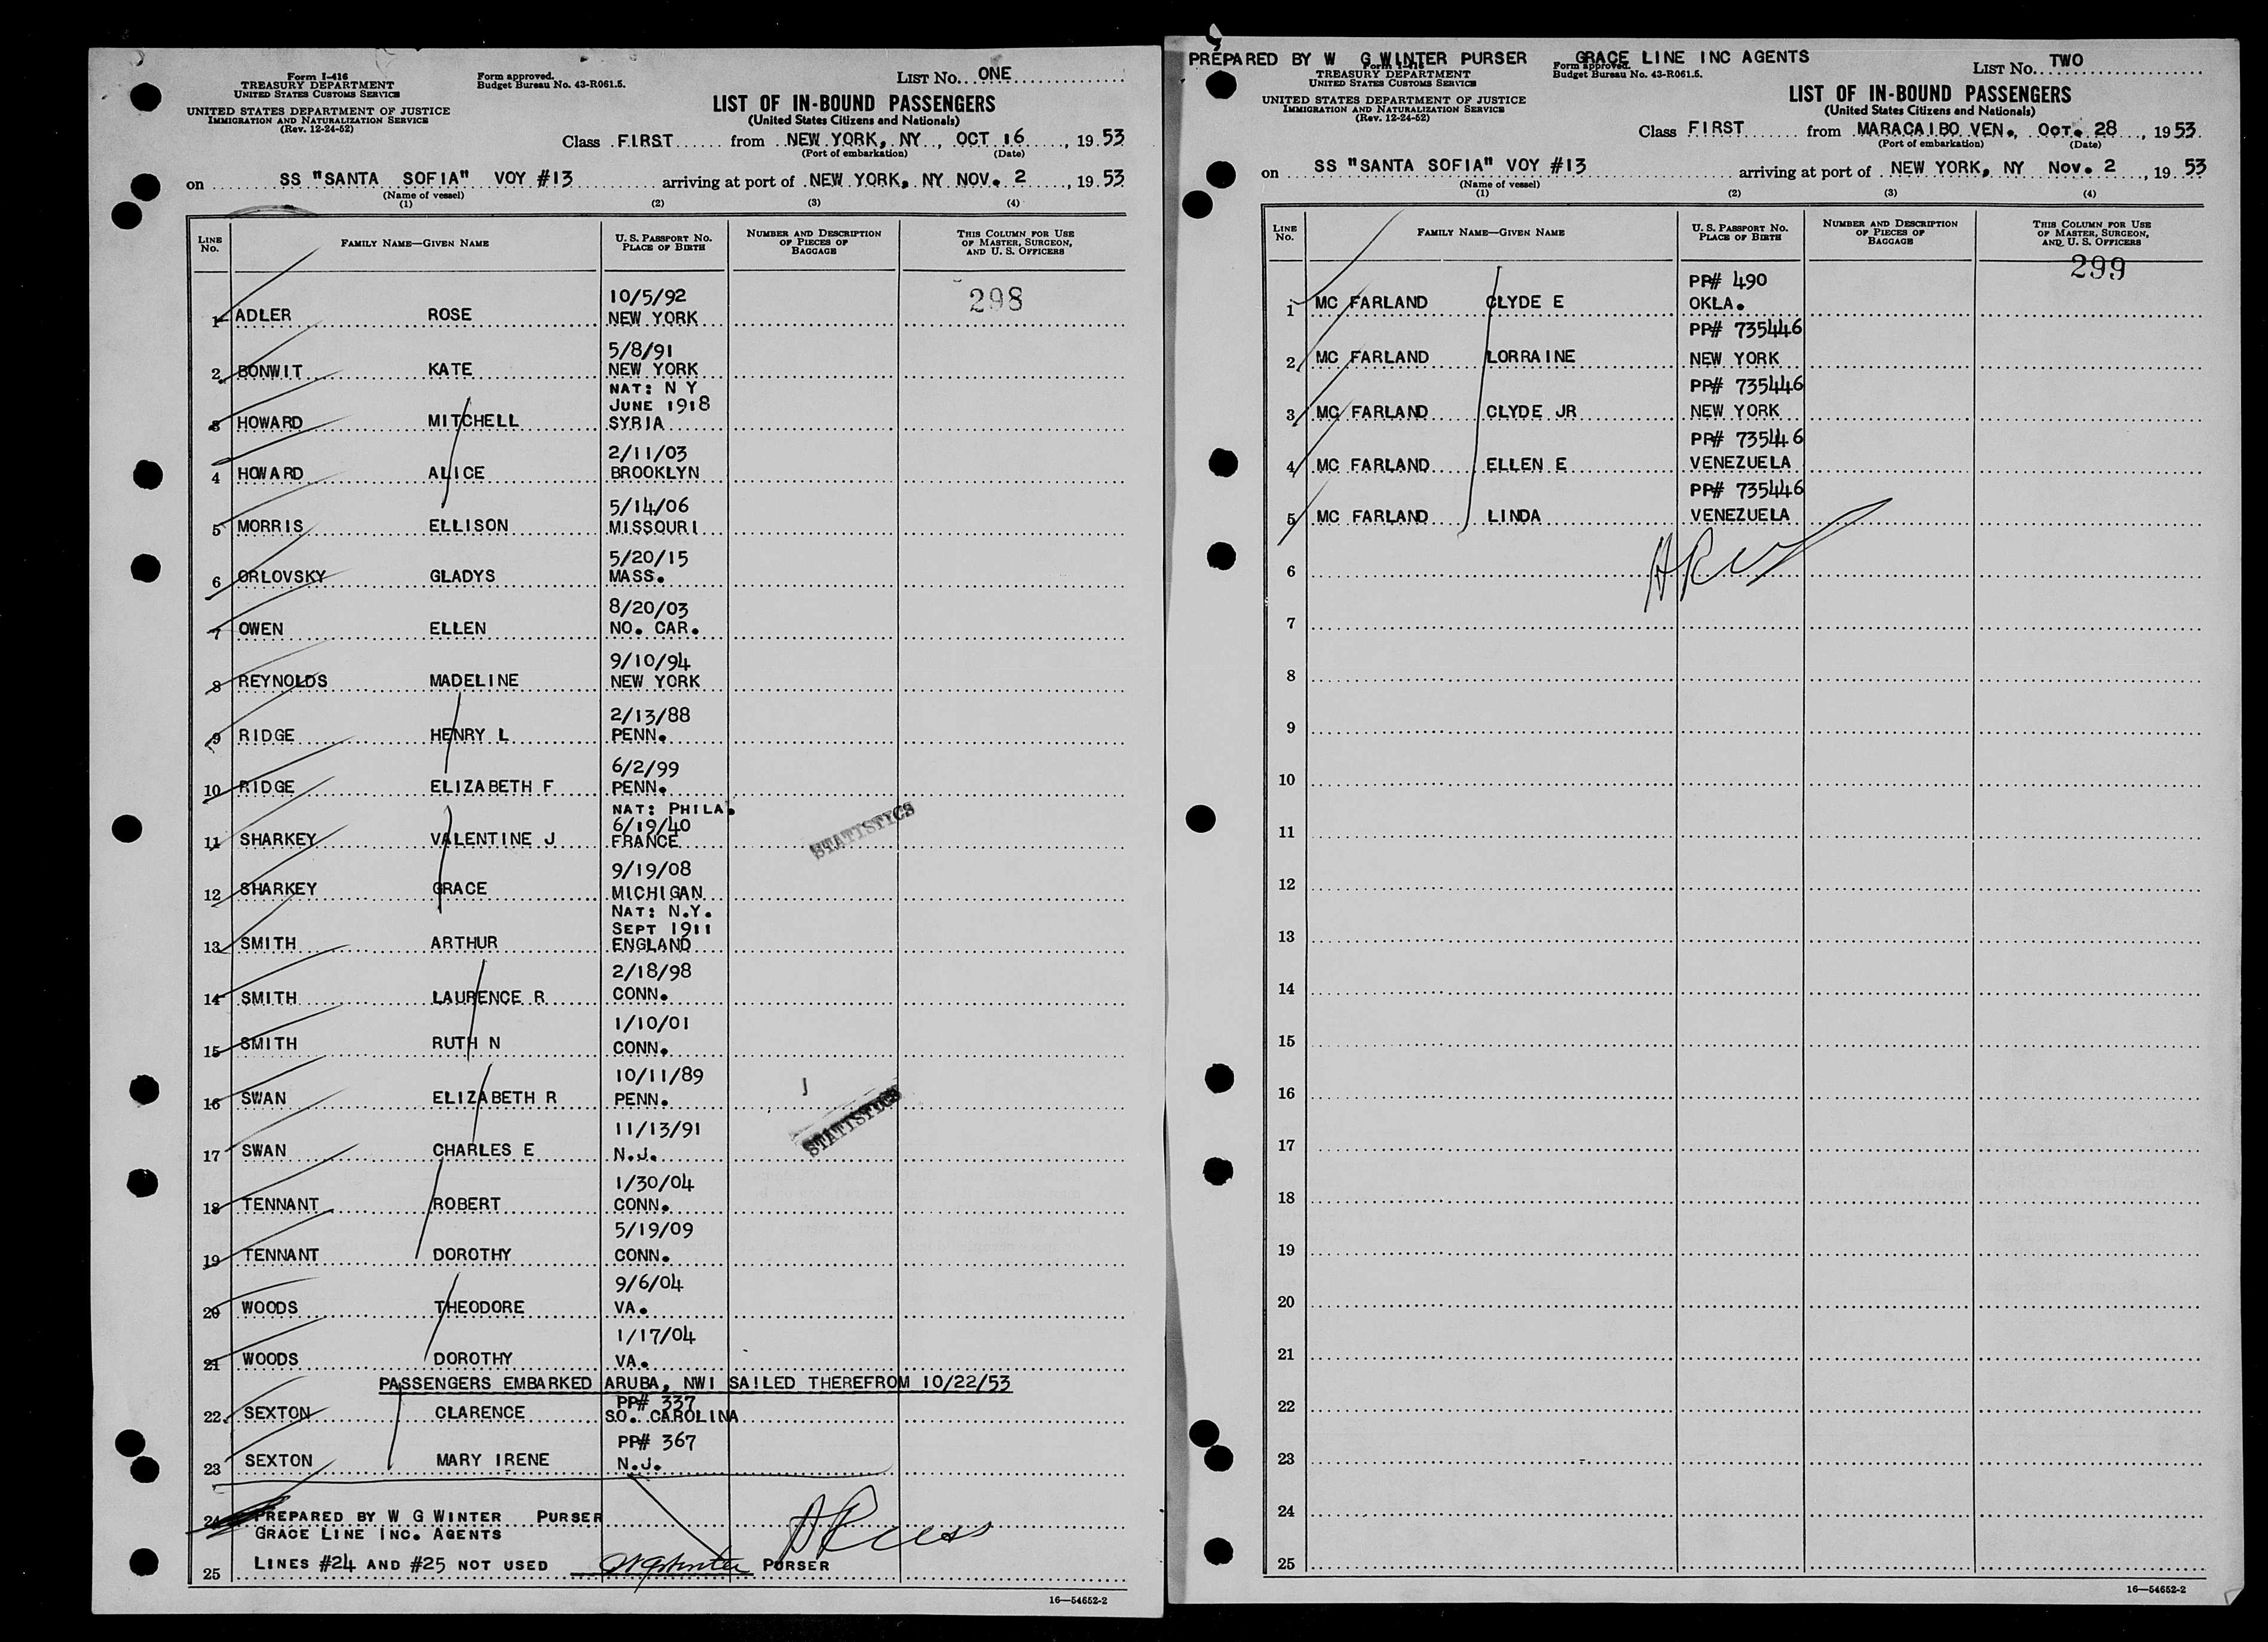 Form I-416
TREASURY DEPARTMENT
UNITED STATES CUSTOMS SERVICE
UNITED STATES DEPARTMENT OF JUSTICE
IMMIGRATION AND NATURALIZATION SERVICE
(Rev. 12-24-52)
Form approved.
Budget Bureau No. 43-R061.5.
LIST No. ONE
LIST OF IN-BOUND PASSENGERS
(United States Citizens and Nationals)
Class FIRST from NEW YORK, NY, OCT 16, 1953
(Port of embarkation) (Date)
on SS "SANTA SOFIA" VOY #13 arriving at port of NEW YORK, NY NOV. 2, 1953
(Name of vessel)
(1) (2) (3) (4)
LINE No. FAMILY NAME—GIVEN NAME U. S. PASSPORT No. PLACE OF BIRTH NUMBER AND DESCRIPTION OF PIECES OF BAGGAGE THIS COLUMN FOR USE OF MASTER, SURGEON, AND U. S. OFFICERS
298
10/5/92
1 ADLER ROSE NEW YORK
5/8/91
2 BONWIT KATE NEW YORK
NAT: N Y
JUNE 1918
3 HOWARD MITCHELL SYRIA
2/11/03
4 HOWARD ALICE BROOKLYN
5/14/06
5 MORRIS ELLISON MISSOURI
5/20/15
6 ORLOVSKY GLADYS MASS.
8/20/03
7 OWEN ELLEN NO. CAR.
9/10/94
8 REYNOLDS MADELINE NEW YORK
2/13/88
9 RIDGE HENRY L PENN.
6/2/99
10 RIDGE ELIZABETH F PENN.
NAT: PHILA.
6/19/40
11 SHARKEY VALENTINE J FRANCE
STATISTICS
9/19/08
12 SHARKEY GRACE MICHIGAN
NAT: N.Y.
SEPT 1911
13 SMITH ARTHUR ENGLAND
2/18/98
14 SMITH LAURENCE R CONN.
1/10/01
15 SMITH RUTH N CONN.
10/11/89
16 SWAN ELIZABETH R PENN.
STATISTICS
11/13/91
17 SWAN CHARLES E N.J.
1/30/04
18 TENNANT ROBERT CONN.
5/19/09
19 TENNANT DOROTHY CONN.
9/6/04
20 WOODS THEODORE VA.
1/17/04
21 WOODS DOROTHY VA.
PASSENGERS EMBARKED ARUBA, NWI SAILED THEREFROM 10/22/53
PP# 337
22 SEXTON CLARENCE SO. CAROLINA
PP# 367
23 SEXTON MARY IRENE N.J.
24 PREPARED BY W G WINTER PURSER
GRACE LINE INC. AGENTS
25 LINES #24 AND #25 NOT USED WGWinter PURSER
16—54652-2
PREPARED BY W G WINTER PURSER GRACE LINE INC AGENTS
Form I-416
TREASURY DEPARTMENT
UNITED STATES CUSTOMS SERVICE
UNITED STATES DEPARTMENT OF JUSTICE
IMMIGRATION AND NATURALIZATION SERVICE
(Rev. 12-24-52)
Form approved.
Budget Bureau No. 43-R061.5.
LIST No. TWO
LIST OF IN-BOUND PASSENGERS
(United States Citizens and Nationals)
Class FIRST from MARACAIBO VEN., OCT. 28, 1953
(Port of embarkation) (Date)
on SS "SANTA SOFIA" VOY #13 arriving at port of NEW YORK, NY NOV. 2, 1953
(Name of vessel)
(1) (2) (3) (4)
LINE No. FAMILY NAME—GIVEN NAME U. S. PASSPORT No. PLACE OF BIRTH NUMBER AND DESCRIPTION OF PIECES OF BAGGAGE THIS COLUMN FOR USE OF MASTER, SURGEON, AND U. S. OFFICERS
299
PP# 490
1 MC FARLAND CLYDE E OKLA.
PP# 735446
2 MC FARLAND LORRAINE NEW YORK
PP# 735446
3 MC FARLAND CLYDE JR NEW YORK
PP# 735446
4 MC FARLAND ELLEN E VENEZUELA
PP# 735446
5 MC FARLAND LINDA VENEZUELA
6
7
8
9
10
11
12
13
14
15
16
17
18
19
20
21
22
23
24
25
16—54652-2